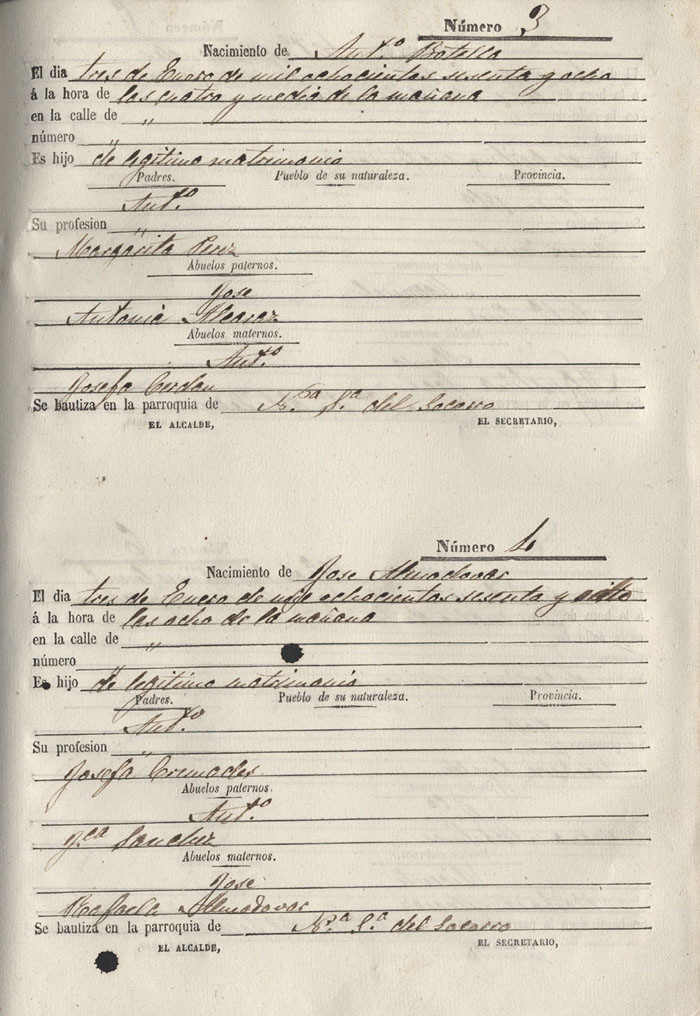 Número 3
Nacimiento de Ant.º Botella
El dia tres de Enero de mil ochocientos sesenta y ocho
á la hora de las cuatro y media de la mañana
en la calle de „
número „
Es hijo de legitimo matrimonio
Padres. Pueblo de su naturaleza. Provincia.
Ant.º
Su profesion „
Margarita Perez
Abuelos paternos.
Jose
Antonia Alcaraz
Abuelos maternos.
Ant.º
Josefa Cerdan
Se bautiza en la parroquia de N.ra S.a del Socorro
EL ALCALDE, EL SECRETARIO,
Número 4
Nacimiento de Jose Almodovar
El dia tres de Enero de mil ochocientos sesenta y ocho
á la hora de las ocho de la mañana
en la calle de „
número „
Es hijo de legitimo matrimonio
Padres. Pueblo de su naturaleza. Provincia.
Ant.º
Su profesion „
Josefa Cremades
Abuelos paternos.
Ant.º
Sanchez
Abuelos maternos.
Jose
Rafaela Almodovar
Se bautiza en la parroquia de N.ª S.ª del Socorro
EL ALCALDE, EL SECRETARIO,